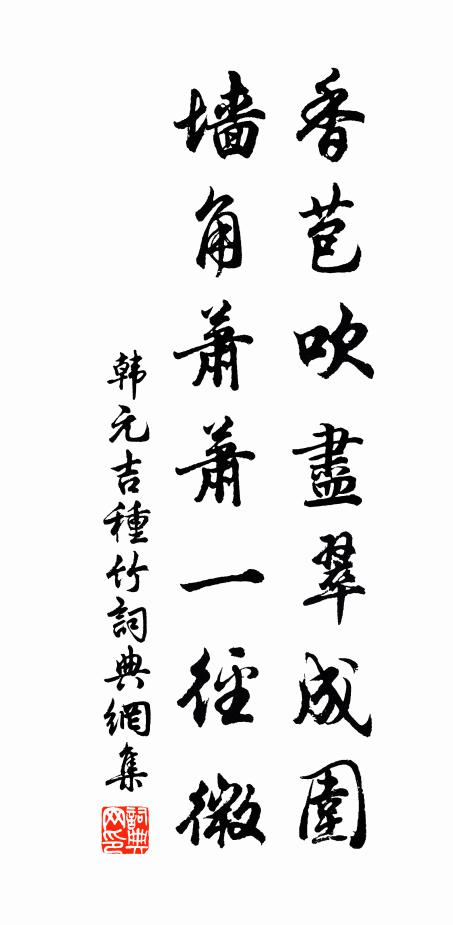 香苞吹盡翠成圍
墻角蕭蕭一徑微
韩元吉種竹詞典網集
詞典网印